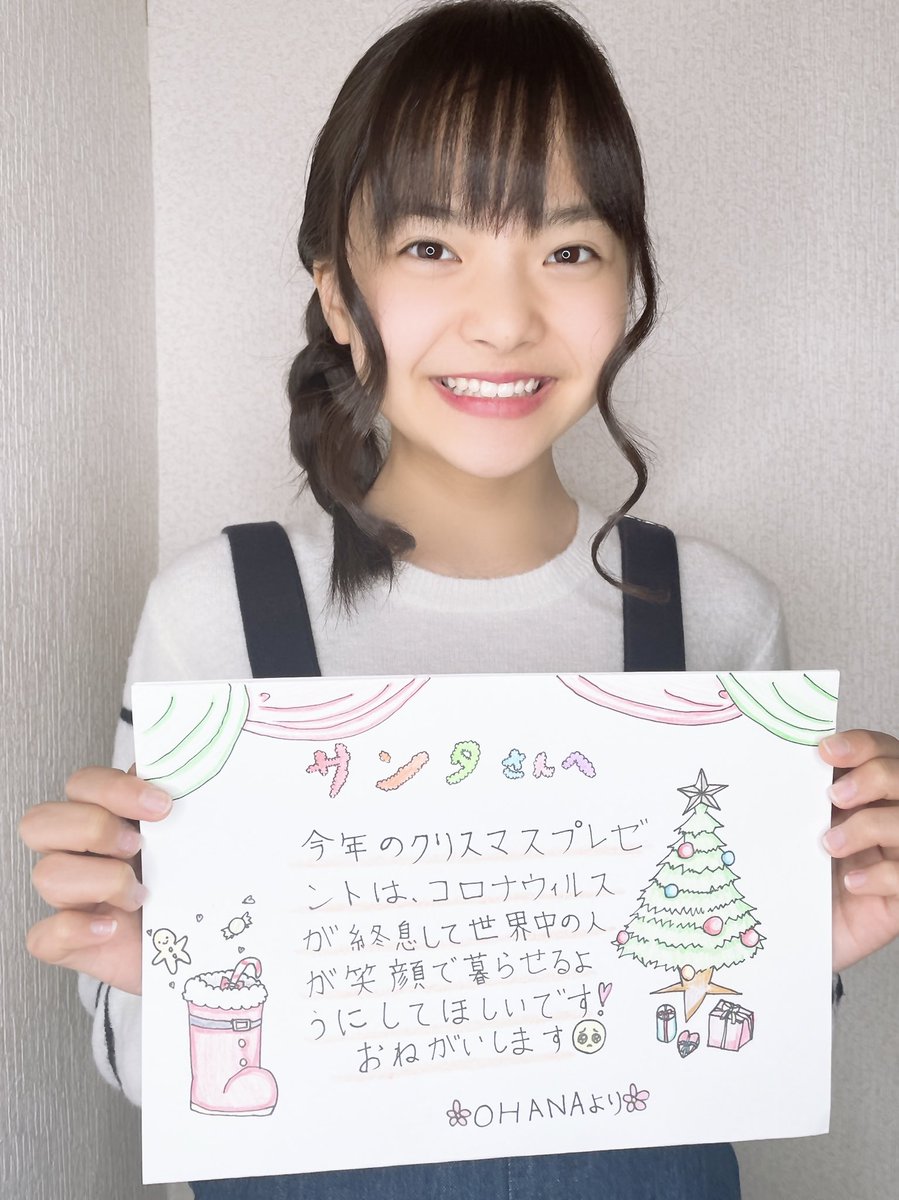 サンタさんへ
今年のクリスマスプレゼ
ントは、コロナウィルス
が終息して世界中の人
が笑顔で暮らせるよ
うにしてほしいです!
おねがいします
OHANAより